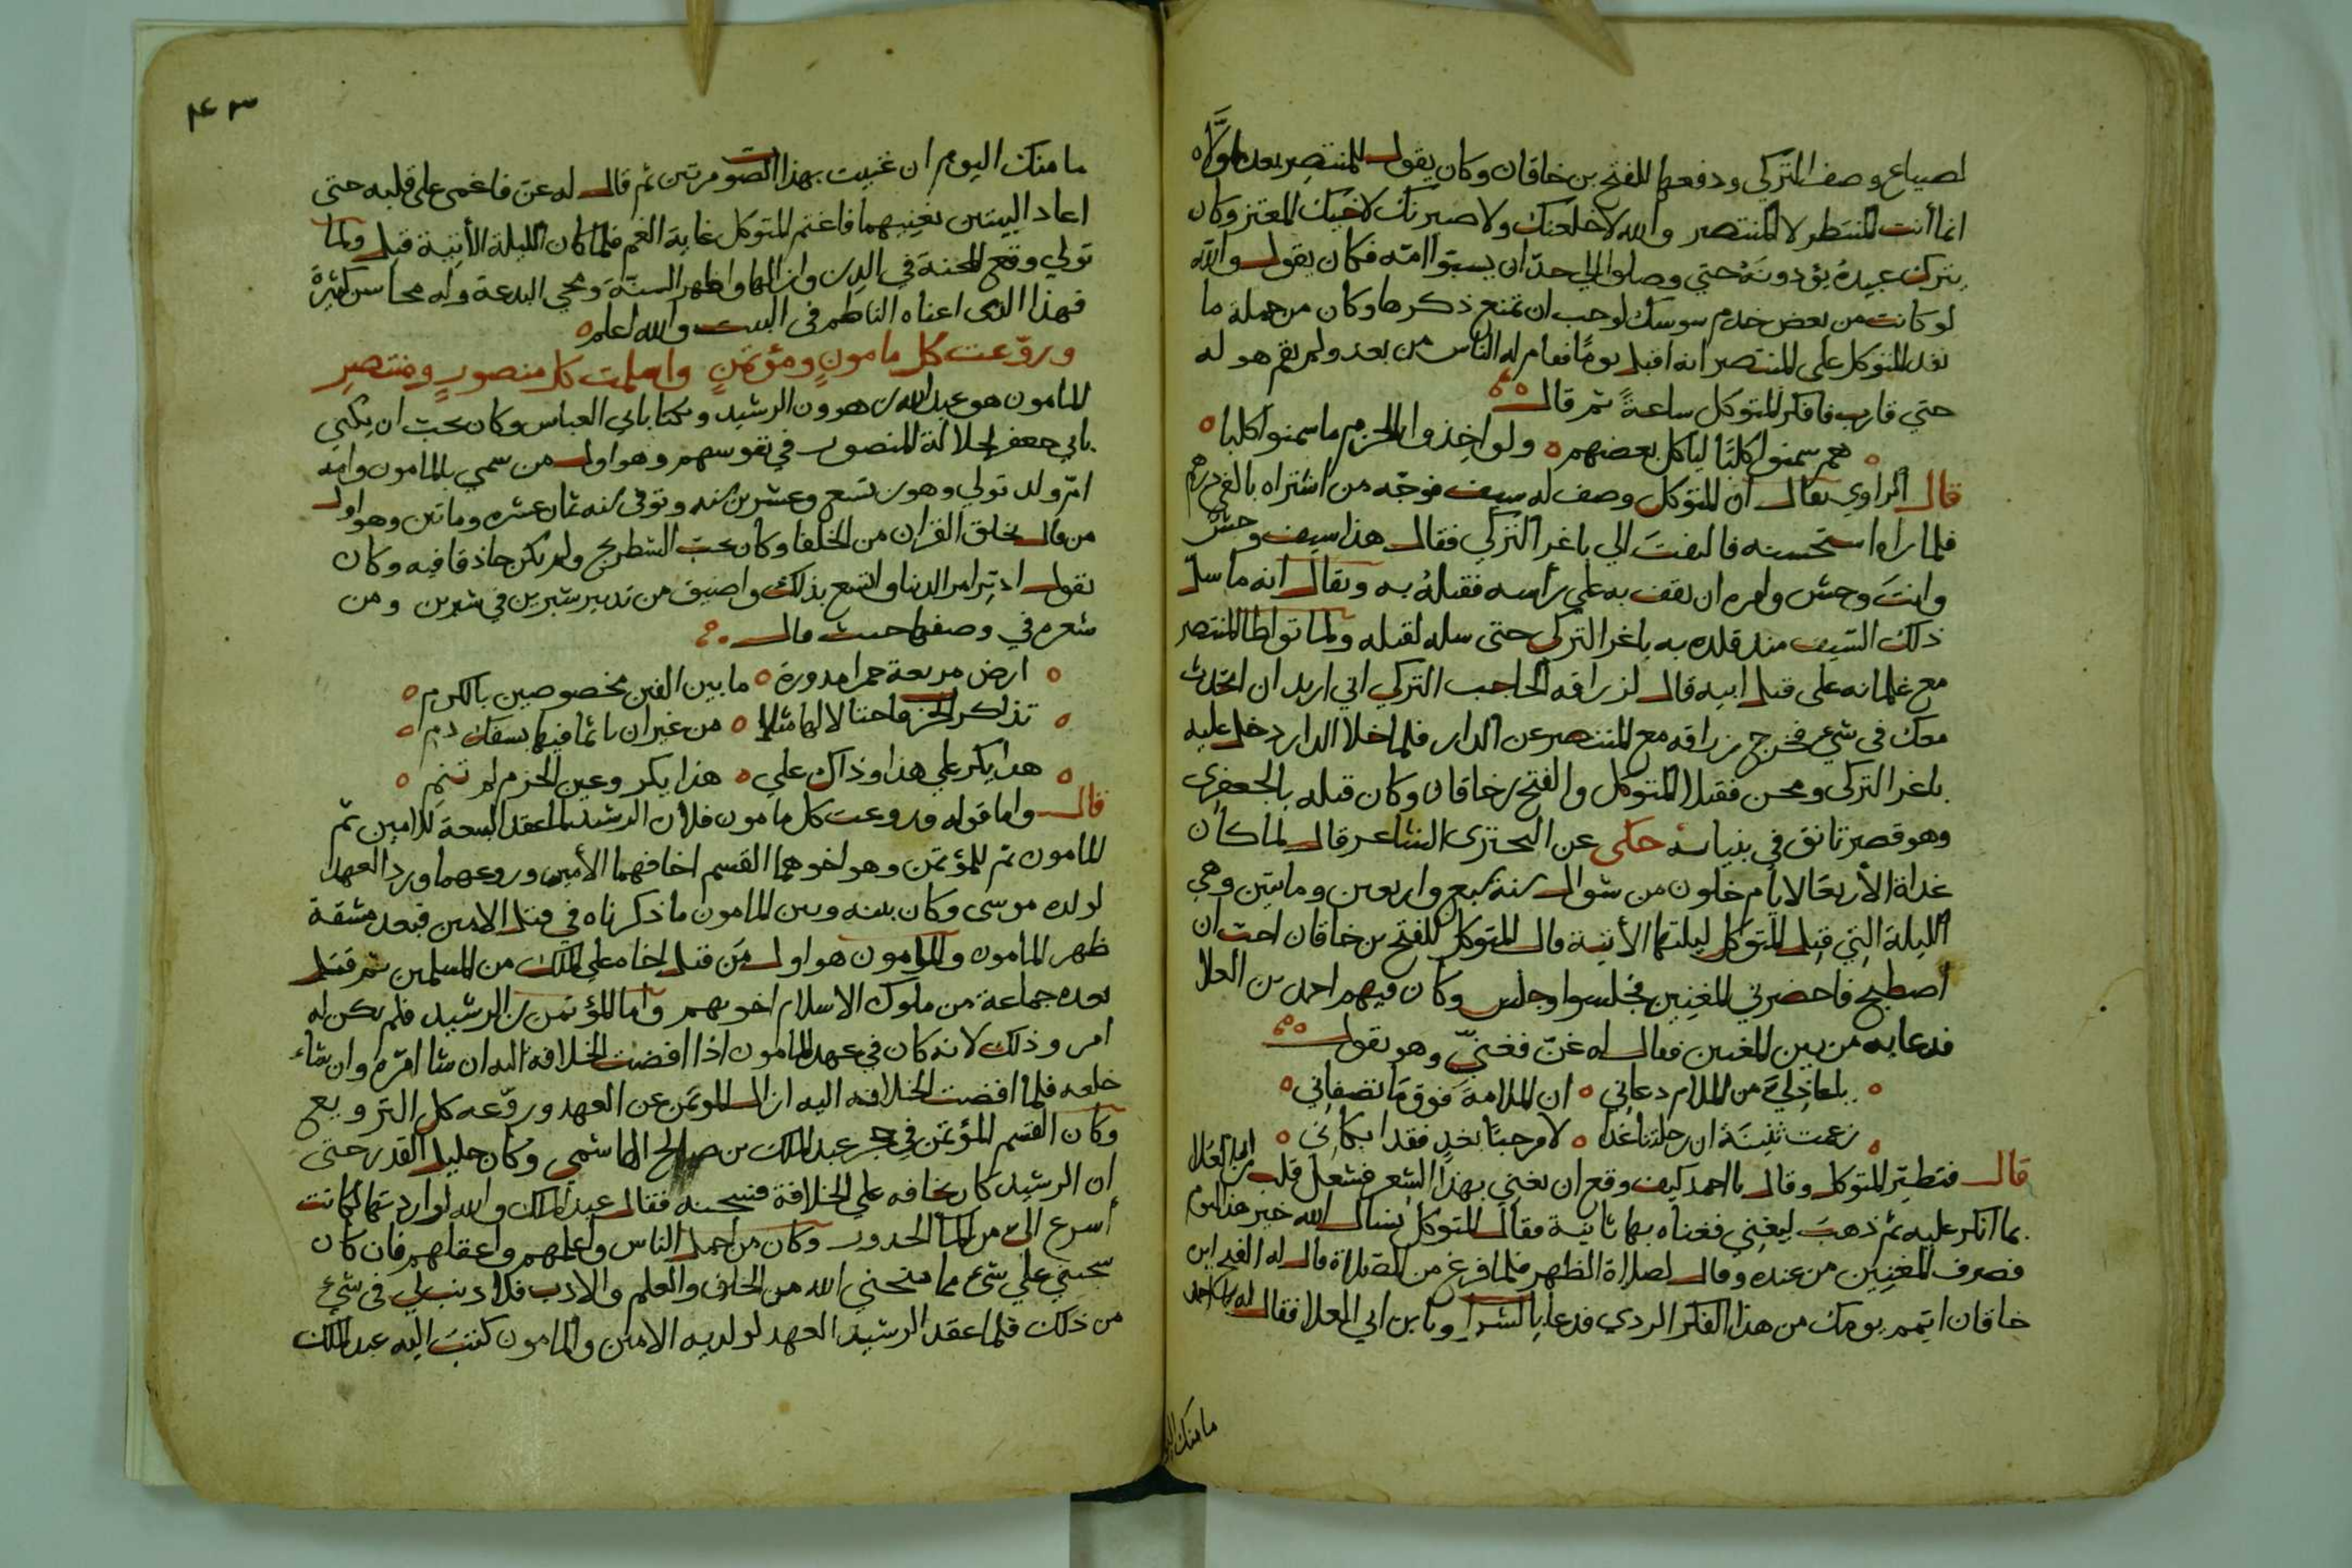 لضياع وصف التركي ودفعها للفتح بن خاقان وكان يقول للمنتصر بعد ما ولاه
انما أنت المنتظر لا المنتصر والله لاخلعنك ولاصيرنك لاخيك المعتز وكان
يترك عبيده يؤذونه حتي وصلوا الي حد ان يسبوا امه فكان يقول والله
لو كانت من بعض خدم سوسك لوجب ان تمنع ذكرها وكان من جملة ما
نقد المتوكل علي المنتصر انه اقبل يوما فقام له الناس من بعد ولم يقم هو له
حتي قارب فافكر المتوكل ساعة ثم قال
هم سمنوا كلبا لياكل بعضهم ولو اخذوا بالحزم ما سمنوا كلبا
قال الراوي يقال ان المتوكل وصف له سيف فوجه من اشتراه بالفي درهم
فلما راه استحسنه فالتفت الي باغر التركي فقال هذا سيف وحش
وانت وحش وامره ان يقف به علي رأسه فقتله به ويقال انه ما سل
ذلك السيف منذ قلده به باغر التركي حتى سله لقتله ولما تواطا المنتصر
مع غلمانه على قتل ابيه قال لزرافه الحاجب التركي اني اريد ان اتحدث
معك في شيء فخرج زرافه مع المنتصر عن الدار فلما خلا الدار دخل عليه
باغر التركي ومحسن فقتلا المتوكل والفتح بن خاقان وكان قتله بالجعفري
وهو قصر تانق في بنيانه حكى عن البحتري الشاعر قال لما كان
غداة الأربعا لايام خلون من شوال سنة سبع واربعين وماتين وهي
الليلة التي قتل المتوكل ليلتها الأتية قال المتوكل للفتح بن خاقان احب ان
اصطبح فاحضرني المغنين فجلسوا وجلس وكان فيهم احمد بن العلا
فدعا به من بين المغنين فقال له غن فغنى وهو يقول
يا عاذلي من الملام دعاني ان الملامة فوق ما تصفاني
زعمت بثينة ان رحلتنا غدا لا مرحبا بغد فقد ابكاني
قال فتطير المتوكل وقال يا احمد كيف وقع ان تغني بهذا الشعر فشغل قلب ابن العلا
بما انكر عليه ثم ذهب ليغني فغناه بها ثانية فقال المتوكل نسال الله خير هذا اليوم
فصرف المغنين من عنده وقال لصلاة الظهر فلما فرغ من الصلاة قال له الفتح ابن
خاقان اتمم يومك من هذا الفكر الردي فدعا بالشراب وبابن ابي العلا فقال له يا احمد
ما منك اليوم
٤٣
ما منك اليوم ان غنيت بهذا الصوت مرتين ثم قال له غن فاغمى على قلبه حتى
اعاد البيتين يغنيهما فاغتم المتوكل غاية الغم فلما كان الليلة الأتية قتل ولما
تولي وقع المحنة في الدين وازالها واظهر السنة ومحي البدعة وله محاسن كثيرة
فهذا الذى اعناه الناظم في البيت والله اعلم
وروّعت كل مامونٍ ومؤتمنٍ واسلمت كل منصورٍ ومنتصرِ
المامون هو عبد الله بن هرون الرشيد ويكنا بابي العباس وكان يحب ان يكني
بابي جعفر لجلالة المنصور في نفوسهم وهو اول من سمي بالمامون وامه
ام ولد تولي وهو بن تسع وعشرين سنه وتوفى سنه ثمان عشره وماتين وهو اول
من قال بخلق القران من الخلفا وكان يحب الشطرنج ولم يكن حاذقا فيه وكان
يقول ادبر امر الدنيا واتسع بذلك واضيق من تدبير شبرين في شبرين ومن
شعره في وصفها حيث قال
ارض مربعة حمرا مدورة ما بين الفين مخصوصين بالكرم
تذاكر الحرب فاحتالا لها مثلا من غير ان ياثما فيها بسفك دم
هذا يكر علي هذا وذاك علي هذا يكر وعين الحزم لم تنم
قال واما قوله وروعت كل مامون فلان الرشيد لما عقد البيعة للامين ثم
للمامون ثم للمؤتمن وهو اخوهما القسم اخافهما الأمين وروعهما ورد العهد
لولده موسى وكان بينه وبين المامون ما ذكرناه في قتل الامين فبعد مشقة
ظهر المامون والمامون هو اول من قتل اخاه علي الملك من المسلمين ثم قتل
بعده جماعة من ملوك الاسلام اخوتهم واما المؤتمن بن الرشيد فلم يكن له
امر وذلك لانه كان في عهد المامون اذا افضت الخلافه اليه ان شا اقره وان شاء
خلعه فلما افضت الخلافه اليه ازال المؤتمن عن العهد وروّعه كل الترويع
وكان القسم المؤتمن في حجر عبد الملك بن صالح الهاشمي وكان جليل القدر حتى
ان الرشيد كان يخافه علي الخلافة فسجنه فقال عبد الملك والله لو اردتها لكانت
أسرع الي من الما الحدور وكان من اجمل الناس واعلمهم واعقلهم فان كان
سجنني علي شيء مما منحني الله من الخلق والعلم والادب فلا ذنب لي في شيء
من ذلك فلما عقد الرشيد العهد لولديه الامين والمامون كتب اليه عبد الملك